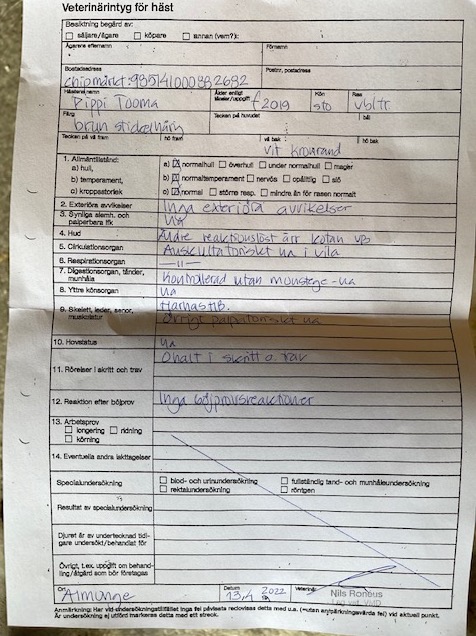 Veterinärintyg för häst
Besiktning begärd av:
säljare/ägare köpare annan (vem?):
Ägarens efternamn Förnamn
Bostadsadress Postnr, postadress
chipmärkt: 985141000882682
Hästens namn Ålder enligt Kön Ras
Pippi Tooma f 2019 sto vbltr.
Färg Tecken på huvudet bål
brun stickelhårig
Tecken på vä fram hö fram vä bak hö bak
vit kronrand
1. Allmäntillstånd:
a) hull, a) normalhull överhull under normalhull mager
b) temperament, b) normaltemperament nervös opålitlig slö
c) kroppsstorlek c) normal större resp. mindre än för rasen normalt
2. Exteriöra avvikelser Inga exteriöra avvikelser
3. Synliga slemh. och palperbara lfk ua
4. Hud Äldre reaktionslöst ärr kotan vb
5. Cirkulationsorgan Auskultatoriskt ua i vila
6. Respirationsorgan —ıı—
7. Digestionsorgan, tänder, munhåla Kontrollerad utan munstege - ua
8. Yttre könsorgan ua
9. Skelett, leder, senor, muskulatur
Övrigt palpatoriskt ua
10. Hovstatus ua
11. Rörelser i skritt och trav Ohalt i skritt o. trav
12. Reaktion efter böjprov Inga böjprovsreaktioner
13. Arbetsprov
longering ridning
körning
14. Eventuella andra iakttagelser
Specialundersökning blod- och urinundersökning fullständig tand- och munhåleundersökning
rektalundersökning röntgen
Resultat av specialundersökning
Djuret är av undertecknad tidigare undersökt/behandlat för
Övrigt, t.ex. uppgift om behandling/åtgärd som bör företagas
Ort Datum Veterinär
Almunge 13,4 2022 Nils Ronéus
Anmärkning: Har vid undersökningstillfället inga fel påvisats redovisas detta med u.a. (=utan anmärkningsvärda fel) vid aktuell punkt.
Är undersökning ej utförd markeras detta med ett streck.